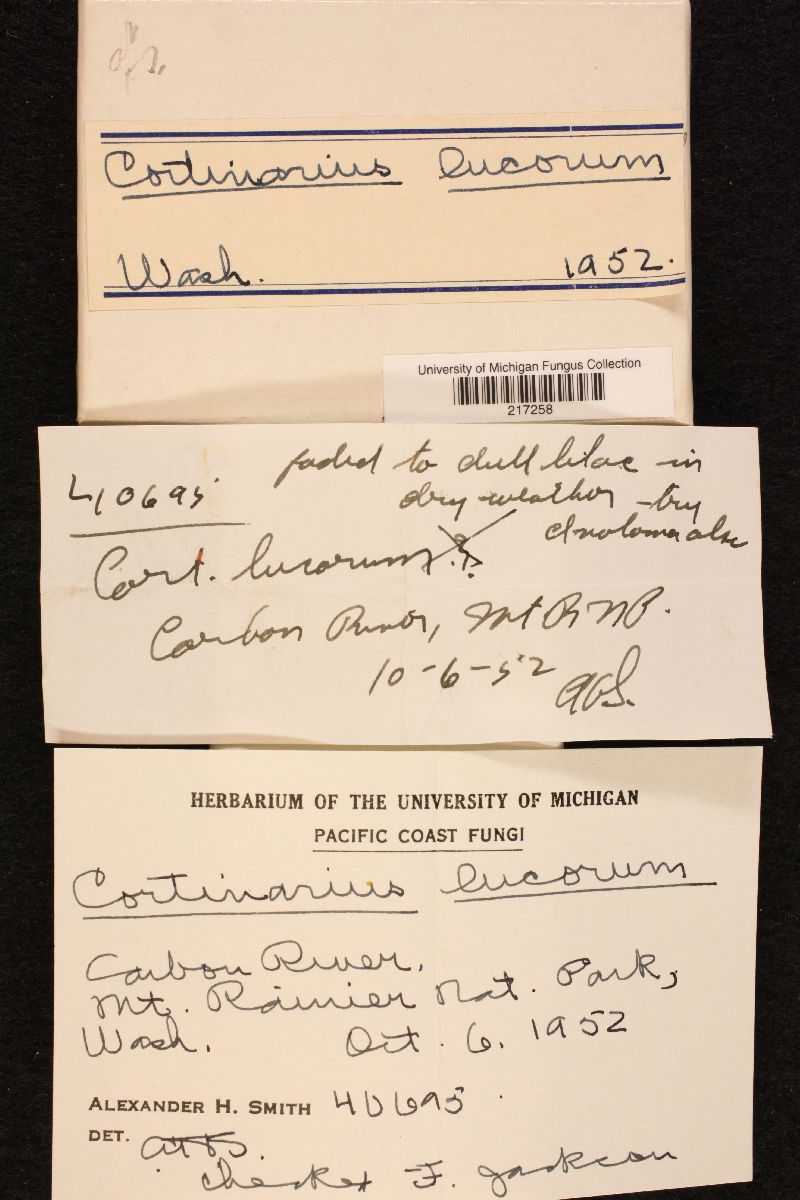 Cortinarius lucorum
Wash. 1952.
University of Michigan Fungus Collection
217258
40695
faded to dull lilac in
dry weather - try
Inoloma also
Cort. lucorum ?
Carbon River, Mt R N P.
10-6-52
AHS.
HERBARIUM OF THE UNIVERSITY OF MICHIGAN
PACIFIC COAST FUNGI
Cortinarius lucorum
Carbon River,
Mt. Rainier Nat. Park,
Wash. Oct. 6, 1952
ALEXANDER H. SMITH 40695
DET. AHS.
checked F. Jackson